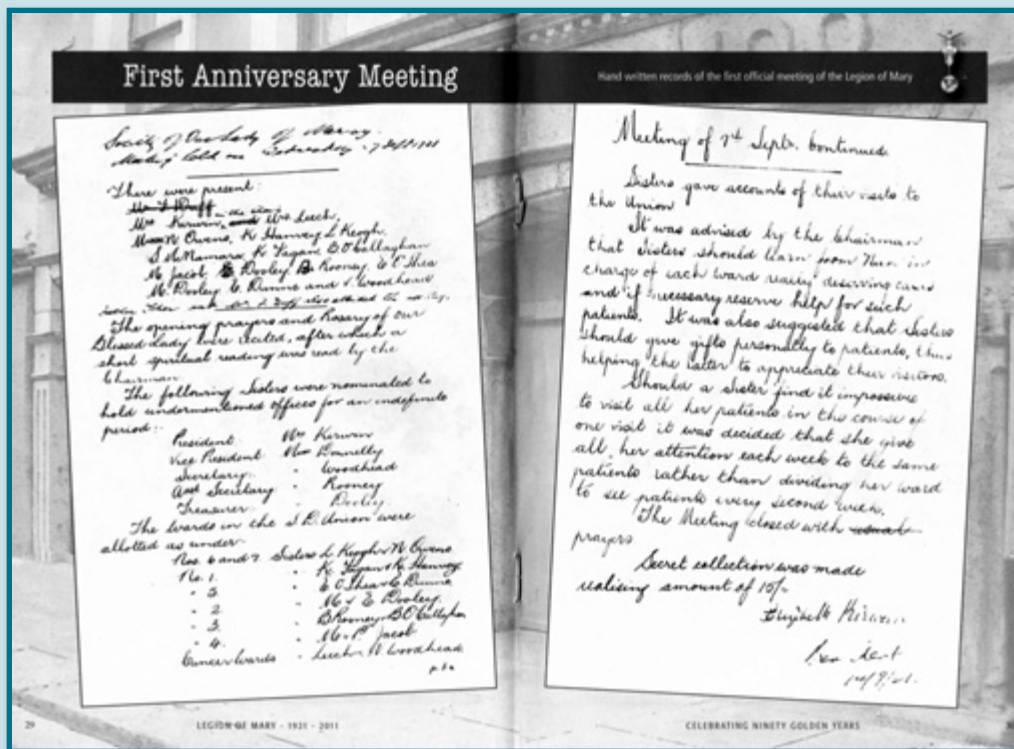 First Anniversary Meeting
Hand written records of the first official meeting of the Legion of Mary
Society of Our Lady of Mercy.
Meeting held on Wednesday 7 Sept 1921
There were present:
Mr F Duff
Mrs Kirwin, and Mrs Leech,
N Owens, K Hanvey L Keogh.
McNamara, K Fagan, B O'Callaghan
M. Jacob, Dooley, B Rooney, E O'Shea
M. Dooley E. Dunne and Woodhead
Mr. F. Duff also attended the meeting.
The opening prayers and Rosary of our
Blessed Lady were recited, after which a
short spiritual reading was read by the
Chairman.
The following Sisters were nominated to
hold undermentioned offices for an indefinite
period:-
President Mrs Kirwin
Vice President Miss Donnelly
Secretary. " Woodhead
Asst Secretary " Rooney
Treasurer " Dooley.
The wards in the S.D. Union were
allotted as under
Nos. 6 and 7. Sisters L Keogh & N Owens
No. 1. " K Fagan & K Hanvey
" 5. " E O'Shea & E Dunne
" 2 " M & E Dooley.
" 3. " B Rooney & B O'Callaghan
" 4. " M & P. Jacob
Cancer Wards " Leech & Woodhead
Meeting of 7th Septr. Continued.
Sisters gave accounts of their visits to
the Union
It was advised by the Chairman
that Sisters should learn from Nun in
charge of each ward really deserving cases
and if necessary reserve help for such
patients. It was also suggested that Sisters
should give gifts personally to patients, thus
helping the latter to appreciate their visitors.
Should a Sister find it impossible
to visit all her patients in the course of
one visit it was decided that she give
all her attention each week to the same
patients rather than dividing her ward
to see patients every second week.
The Meeting closed with usual
prayers
Secret collection was made
realising amount of 15/-
Elizabeth Kirwin
President
29
LEGION OF MARY - 1921 - 2011
CELEBRATING NINETY GOLDEN YEARS